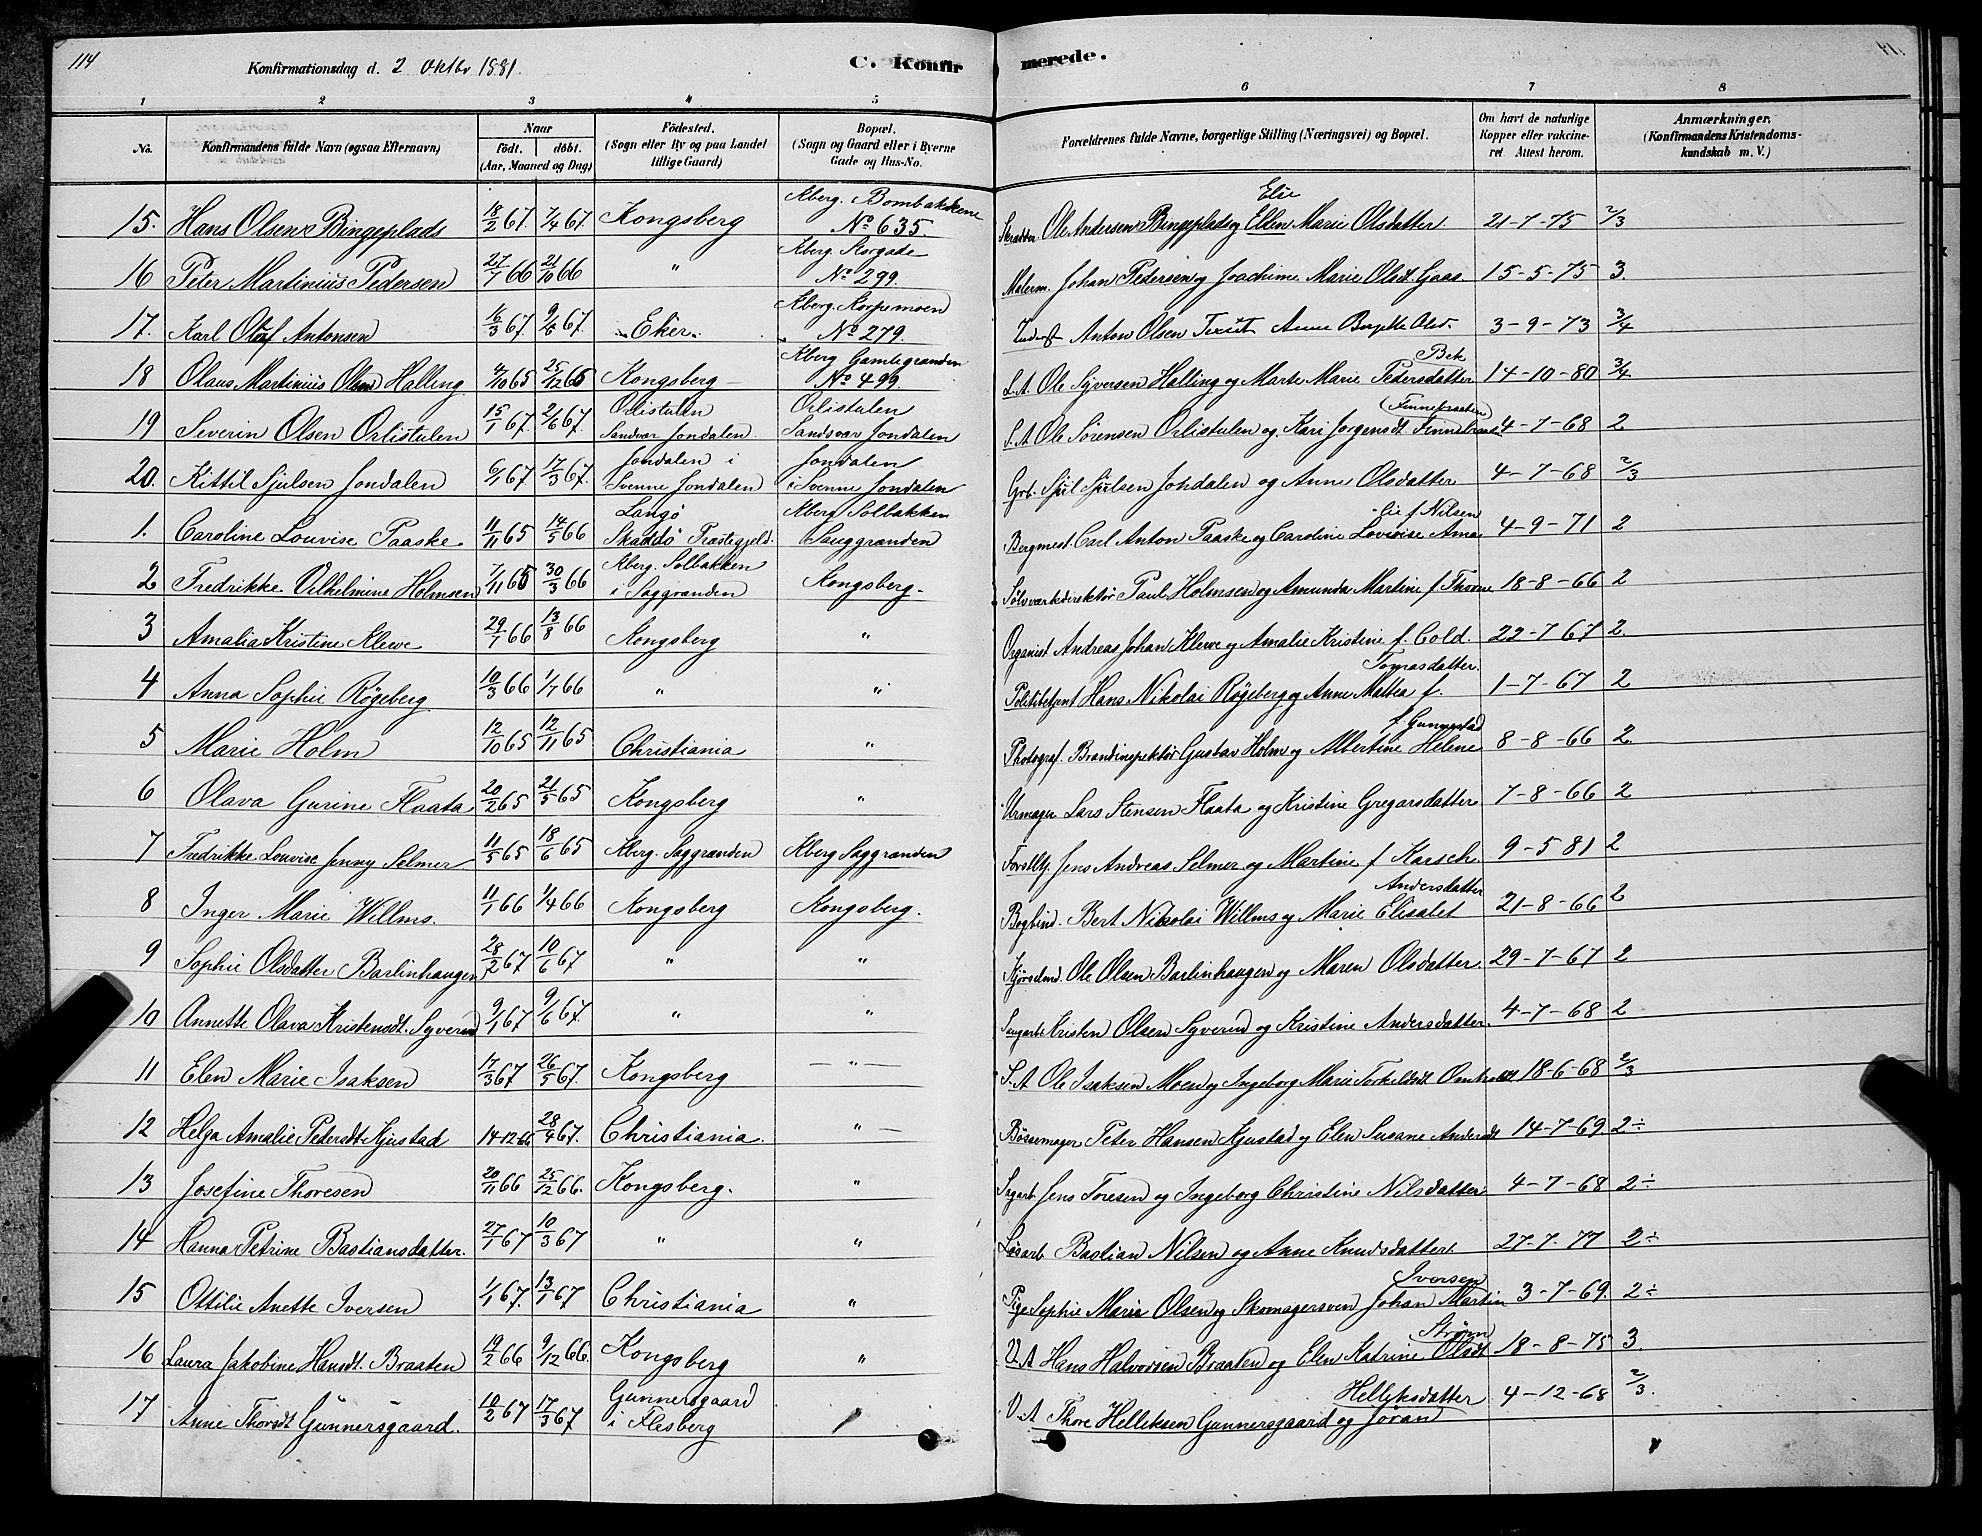 114
Konfirmationsdag d. 2 Oktbr 1881.
C. Konfir
merede.
1 2 3 4 5 6 7 8
No.
Konfirmandens fulde Navn (ogsaa Efternavn)
Naar
födt. döbt.
(Aar, Maaned og Dag)
Födested.
(Sogn eller By og paa Landet tillige Gaard)
Bopæl.
(Sogn og Gaard eller i Byerne Gade og Hus-No.
Forældrenes fulde Navne, borgerlige Stilling (Næringsvei) og Bopæl.
Om havt de naturlige Kopper eller vakcineret Attest herom.
Anmærkninger.
(Konfirmandens Kristendomskundskab m. V.)
15. Hans Olsen Bingeplads 18/2 67. 7/4 67. Kongsberg Kberg. Bombakkene No 635. Skrædder Ole Andersen Bingeplads og Ellen Elie Marie Olsdatter. 21-7-75 2/3
16 Peter Martinius Pedersen 27/7 66 21/10 66 " Kberg. Storgade No 299. Malerm. Johan Pedersen og Joachime Marie Olsdt. Gaas. 15-5-75 3.
17. Karl Olaf Antonsen 16/3 67. 9/6 67. Eker. Kberg. Korpemoen No 279. Anton Olsen Anne Birgitte Olsd. 3-9-73 3/4
18 Olaus Martinius Olsen Halling 4/10 65 25/12 65 Kongsberg Kberg Gamlegranden No 499. S.A. Ole Syversen Halling og Marte Marie Pedersdatter Bek 14-10-80 3/4
19 Severin Olsen Orlistulen 15/1 67. 2/6 67. Orlistulen Sandsvær Jondalen Orlistulen Sandsvær Jondalen S.A Ole Sörensen Orlistulen og Kari Jorgensdt. Finnebraaten (Finnebraaten) 4-7-68 2
20. Kittil Sjulsen Jondalen 6/1 67 17/3 67. Jondalen i Svenne Jondalen Jondalen i Svenne Jondalen Grb. Sjul Sjulsen Jondalen og Anne Olsdatter 4-7-68 2/3
1. Caroline Louvise Paaske 11/11 65 14/5 66 Langö Skaatö Præstegjeld. Kberg Solbakken Sauggranden Bergmest. Carl Anton Paaske og Caroline Lovvise Ama-lie f. Nilsen 4-9-71 2
2 Fredrikke Vilhelmine Holmsen 7/11 65 30/3 66 Kberg. Solbakken i Saggranden Kongsberg. Sölvverksdirektör Paul Holmsen og Amunda Martine f. Thorne 18-8-66 2
3 Amalia Kristine Klewe 29/1 66 13/8 66 Kongsberg " Organist Andreas Johan Klewe og Amalie Kristine f. Cold. 22-7-67 2.
4 Anna Sophie Røgeberg 10/3 66 1/7 66 " " Politibetjent Hans Nikolai Røgeberg og Anne Mattea f. Tomasdatter. 1-7-67 2
5 Marie Holm 12/10 65 12/11 65 Christiania " Photograf. Brandinspektör Gustav Holm og Albertine Helene f. Gunnestad 8-8-66 2.
6 Olava Gurine Flaata 20/2 65 21/5 65 Kongsberg " Urmager Lars Stensen Flaata og Kristine Gregarsdatter 7-8-66 2
7 Fredrikke Louvise Jenny Selmer 11/5 65 18/6 65 Kberg. Saggranden Kberg Saggranden Forstbtj. Jens Andreas Selmer og Martine f. Karsch. 9-5 81 2
8 Inger Marie Willms. 11/1 66 1/4 66 Kongsberg Kongsberg. Bogbind. Bert Nikolai Willms og Marie Elisabet Andersdatter 21-8-66 2
9 Sophie Olsdatter Barlinhaugen 28/2 67 10/6 67 " " Kjörselmd. Ole Olsen Barlinhaugen og Maren Olsdatter. 29-7-67 2
10 Annette Olava Kristensdt. Syverud 9/1 67 9/6 67. " " Saugarb. Kristen Olsen Syverud og Kristine Andersdatter. 4-7-68 2
11 Elen Marie Isaksen 17/3 67 26/5 67. Kongsberg " S.A Ole Isaksen Moen og Ingeborg Marie Torkeldsdt Omholdt 18-6-68 2/3
12 Helga Amalie Pedersdt. Kjustad 14-12-66 28/4 67. Christiania. " Bössemager Peter Hansen Kjustad og Elen Susane Andersdt 14-7-69. 2÷
13 Josefine Thoresen 20/11 66 25/12 66. Kongsberg. " Sagarb. Jens Toresen og Ingeborg Christine Nilsdatter 4-7-68 2÷
14 Hanna Petrine Bastiansdatter. 27/1 67 10/3 67 " " Løsarb Bastian Nilsen og Anne Knudsdatter. 27-7-77 2÷
15 Ottilie Anette Iversen 1/1 67. 13/1 67 Christiania " Pige Sophie Marie Olsen og Skomagersven Johan Martin Iversen 3-7-69. 2÷
16 Laura Jakobine Hansdt. Braaten 19/2 66 9/12 66. Kongsberg " V.A Hans Halvorsen Braaten og Elen Katrine Olsdt Strøm 18-8-75 3.
17 Anne Thorsdt Gunnersgaard. 10/2 67 17/3 67 Gunnersgaard i Flesberg V.A Thore Helleksen Gunnersgaard og Jöran Helleksdatter 4-12-68 2/3.